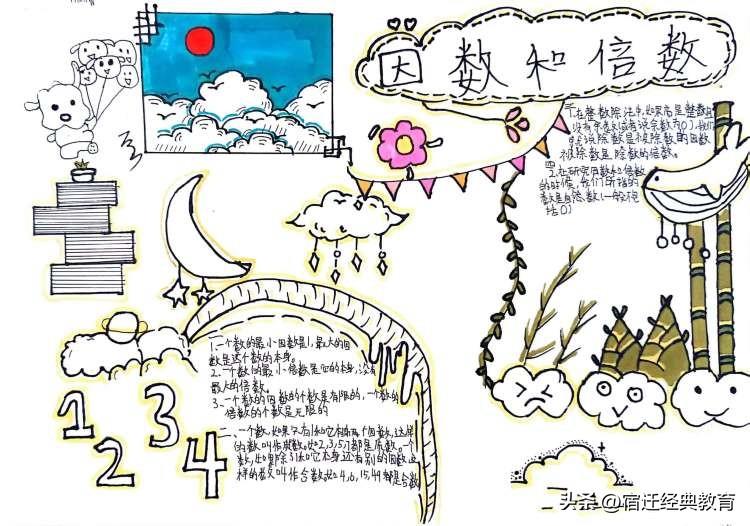 因数和倍数
一、1.在整数除法中,如果商是整数且
没有余数(或者说余数为0),我们
就说除数是被除数的因数
被除数是除数的倍数。
2.在研究因数和倍数
的时候,我们所指的
数是自然数(一般不包
括0)
1.一个数的最小因数是1,最大的因
数是这个数的本身。
2.一个数的最小倍数是它的本身,没有
最大的倍数。
3.一个数的因数的个数是有限的,一个数的
倍数的个数是无限的
二、一个数,如果只有1和它本身两个因数,这样
的数叫作质数。如2,3,5,7都是质数。一个
数,如果除了1和它本身还有别的因数,这
样的数叫作合数,如4,6,15,49都是合数
1 3
2 4
头条@宿迁经典教育